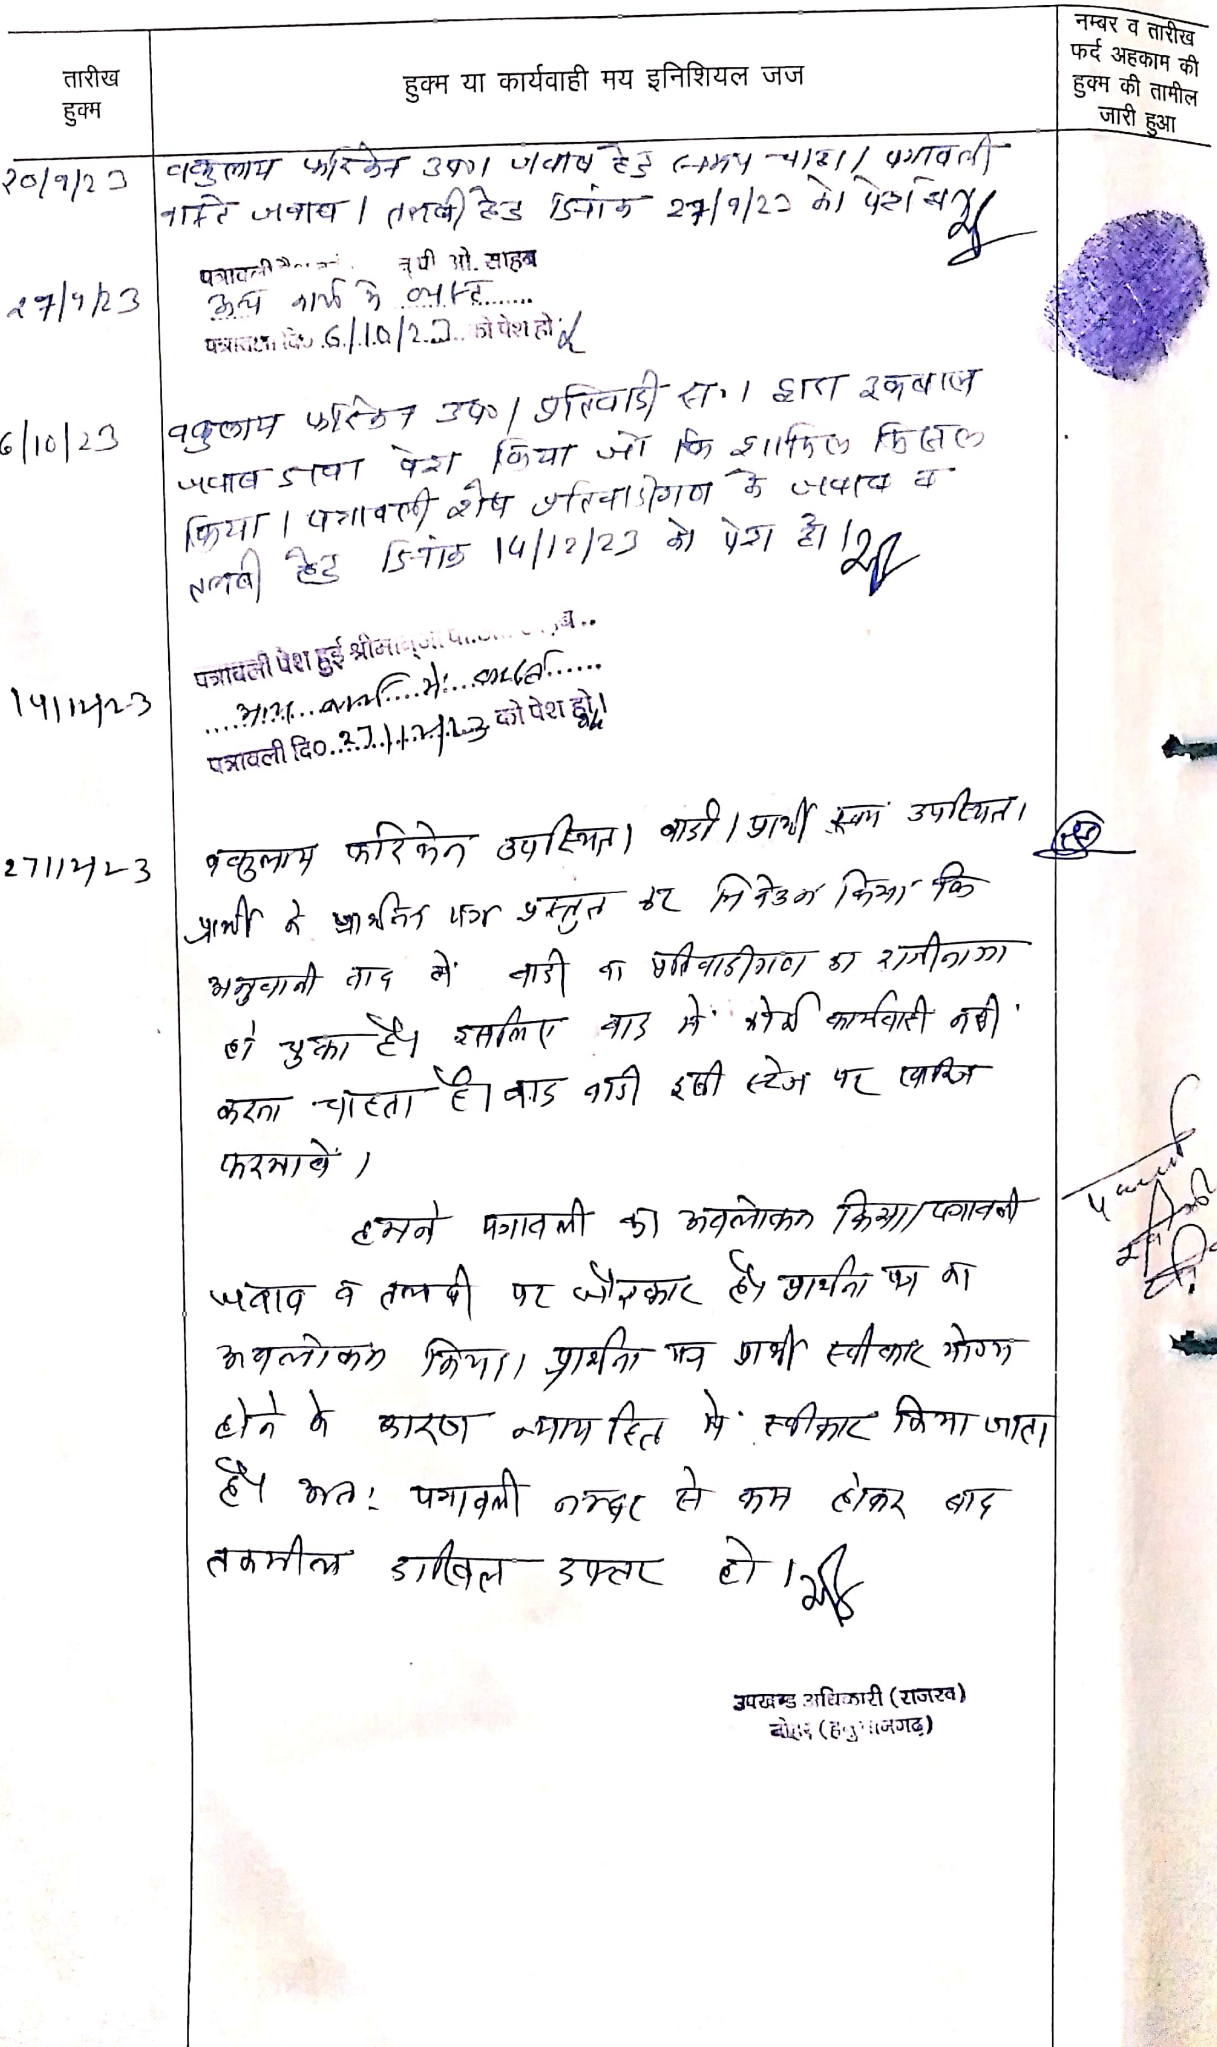 तारीख
हुक्म
हुक्म या कार्यवाही मय इनिशियल जज
नम्बर व तारीख
फर्द अहकाम की
हुक्म की तामील
जारी हुआ
20/9/23
वकुलाय फरिकेन उप०। जवाब हेतु समय चाहा। पत्रावली
वास्ते जवाब। तलबी हेतु दिनांक 27/9/23 को पेश
27/9/23
पत्रावली ओ. साहब
अन्य कार्य में व्यस्त
पत्रावली दि० 6/10/23 को पेश हो
6/10/23
वकुलाय फरिकेन उप०। प्रतिवादी सं.1 द्वारा इकबाल
जवाब दावा पेश किया जो कि शामिल मिसल
किया। पत्रावली शेष प्रतिवादीगण के जवाब व
तलबी हेतु दिनांक 14/12/23 को पेश हो।
14/12/23
पत्रावली पेश हुई श्रीमान्
अन्य कार्य में व्यस्त
पत्रावली दि० 27/12/23 को पेश हो।
27/12/23
वकुलाय फरिकेन उपस्थित। वादी/प्रार्थी स्वयं उपस्थित।
प्रार्थी ने प्रार्थना पत्र प्रस्तुत कर निवेदन किया कि
अनुवानी वाद में वादी व प्रतिवादीगण का राजीनामा
हो चुका है। इसलिए वाद में कोई कार्यवाही नहीं
करना चाहता है। वाद वादी इसी स्टेज पर खारिज
फरमावें।
हमने पत्रावली का अवलोकन किया। पत्रावली
जवाब व तलबी पर है। प्रार्थना पत्र का
अवलोकन किया। प्रार्थना पत्र प्रार्थी स्वीकार योग्य
होने के कारण न्यायहित में स्वीकार किया जाता
है। अतः पत्रावली नम्बर से कम होकर बाद
तकमील दाखिल दफ्तर हो।
उपखण्ड अधिकारी (राजस्व)
नोहर (हनुमानगढ़)